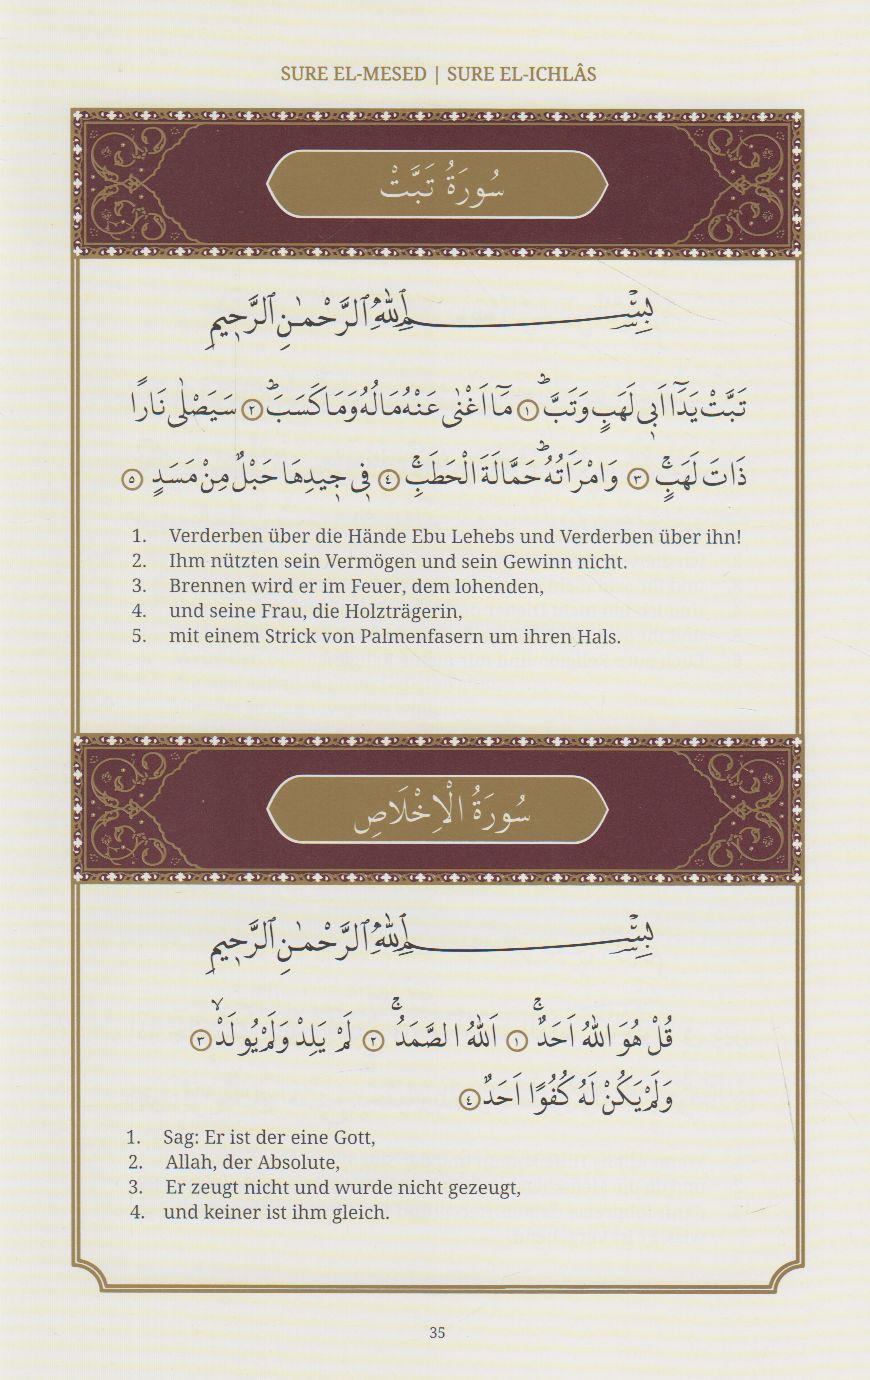 SURE EL-MESED | SURE EL-ICHLÂS
سُورَةُ تَبَّتْ
بِسْمِ اللّٰهِ الرَّحْمٰنِ الرَّح۪يمِ
تَبَّتْ يَدَٓا اَب۪ي لَهَبٍ وَتَبَّۜ ١ مَٓا اَغْنٰى عَنْهُ مَالُهُ وَمَا كَسَبَۜ ٢ سَيَصْلٰى نَارًا
ذَاتَ لَهَبٍۚ ٣ وَامْرَاَتُهُۜ حَمَّالَةَ الْحَطَبِۚ ٤ ف۪ي ج۪يدِهَا حَبْلٌ مِنْ مَسَدٍ ٥
1. Verderben über die Hände Ebu Lehebs und Verderben über ihn!
2. Ihm nützten sein Vermögen und sein Gewinn nicht.
3. Brennen wird er im Feuer, dem lohenden,
4. und seine Frau, die Holzträgerin,
5. mit einem Strick von Palmenfasern um ihren Hals.
سُورَةُ الْاِخْلَاصِ
بِسْمِ اللّٰهِ الرَّحْمٰنِ الرَّح۪يمِ
قُلْ هُوَ اللّٰهُ اَحَدٌۚ ١ اَللّٰهُ الصَّمَدُۚ ٢ لَمْ يَلِدْ وَلَمْ يُولَدْۙ ٣
وَلَمْ يَكُنْ لَهُ كُفُوًا اَحَدٌ ٤
1. Sag: Er ist der eine Gott,
2. Allah, der Absolute,
3. Er zeugt nicht und wurde nicht gezeugt,
4. und keiner ist ihm gleich.
35